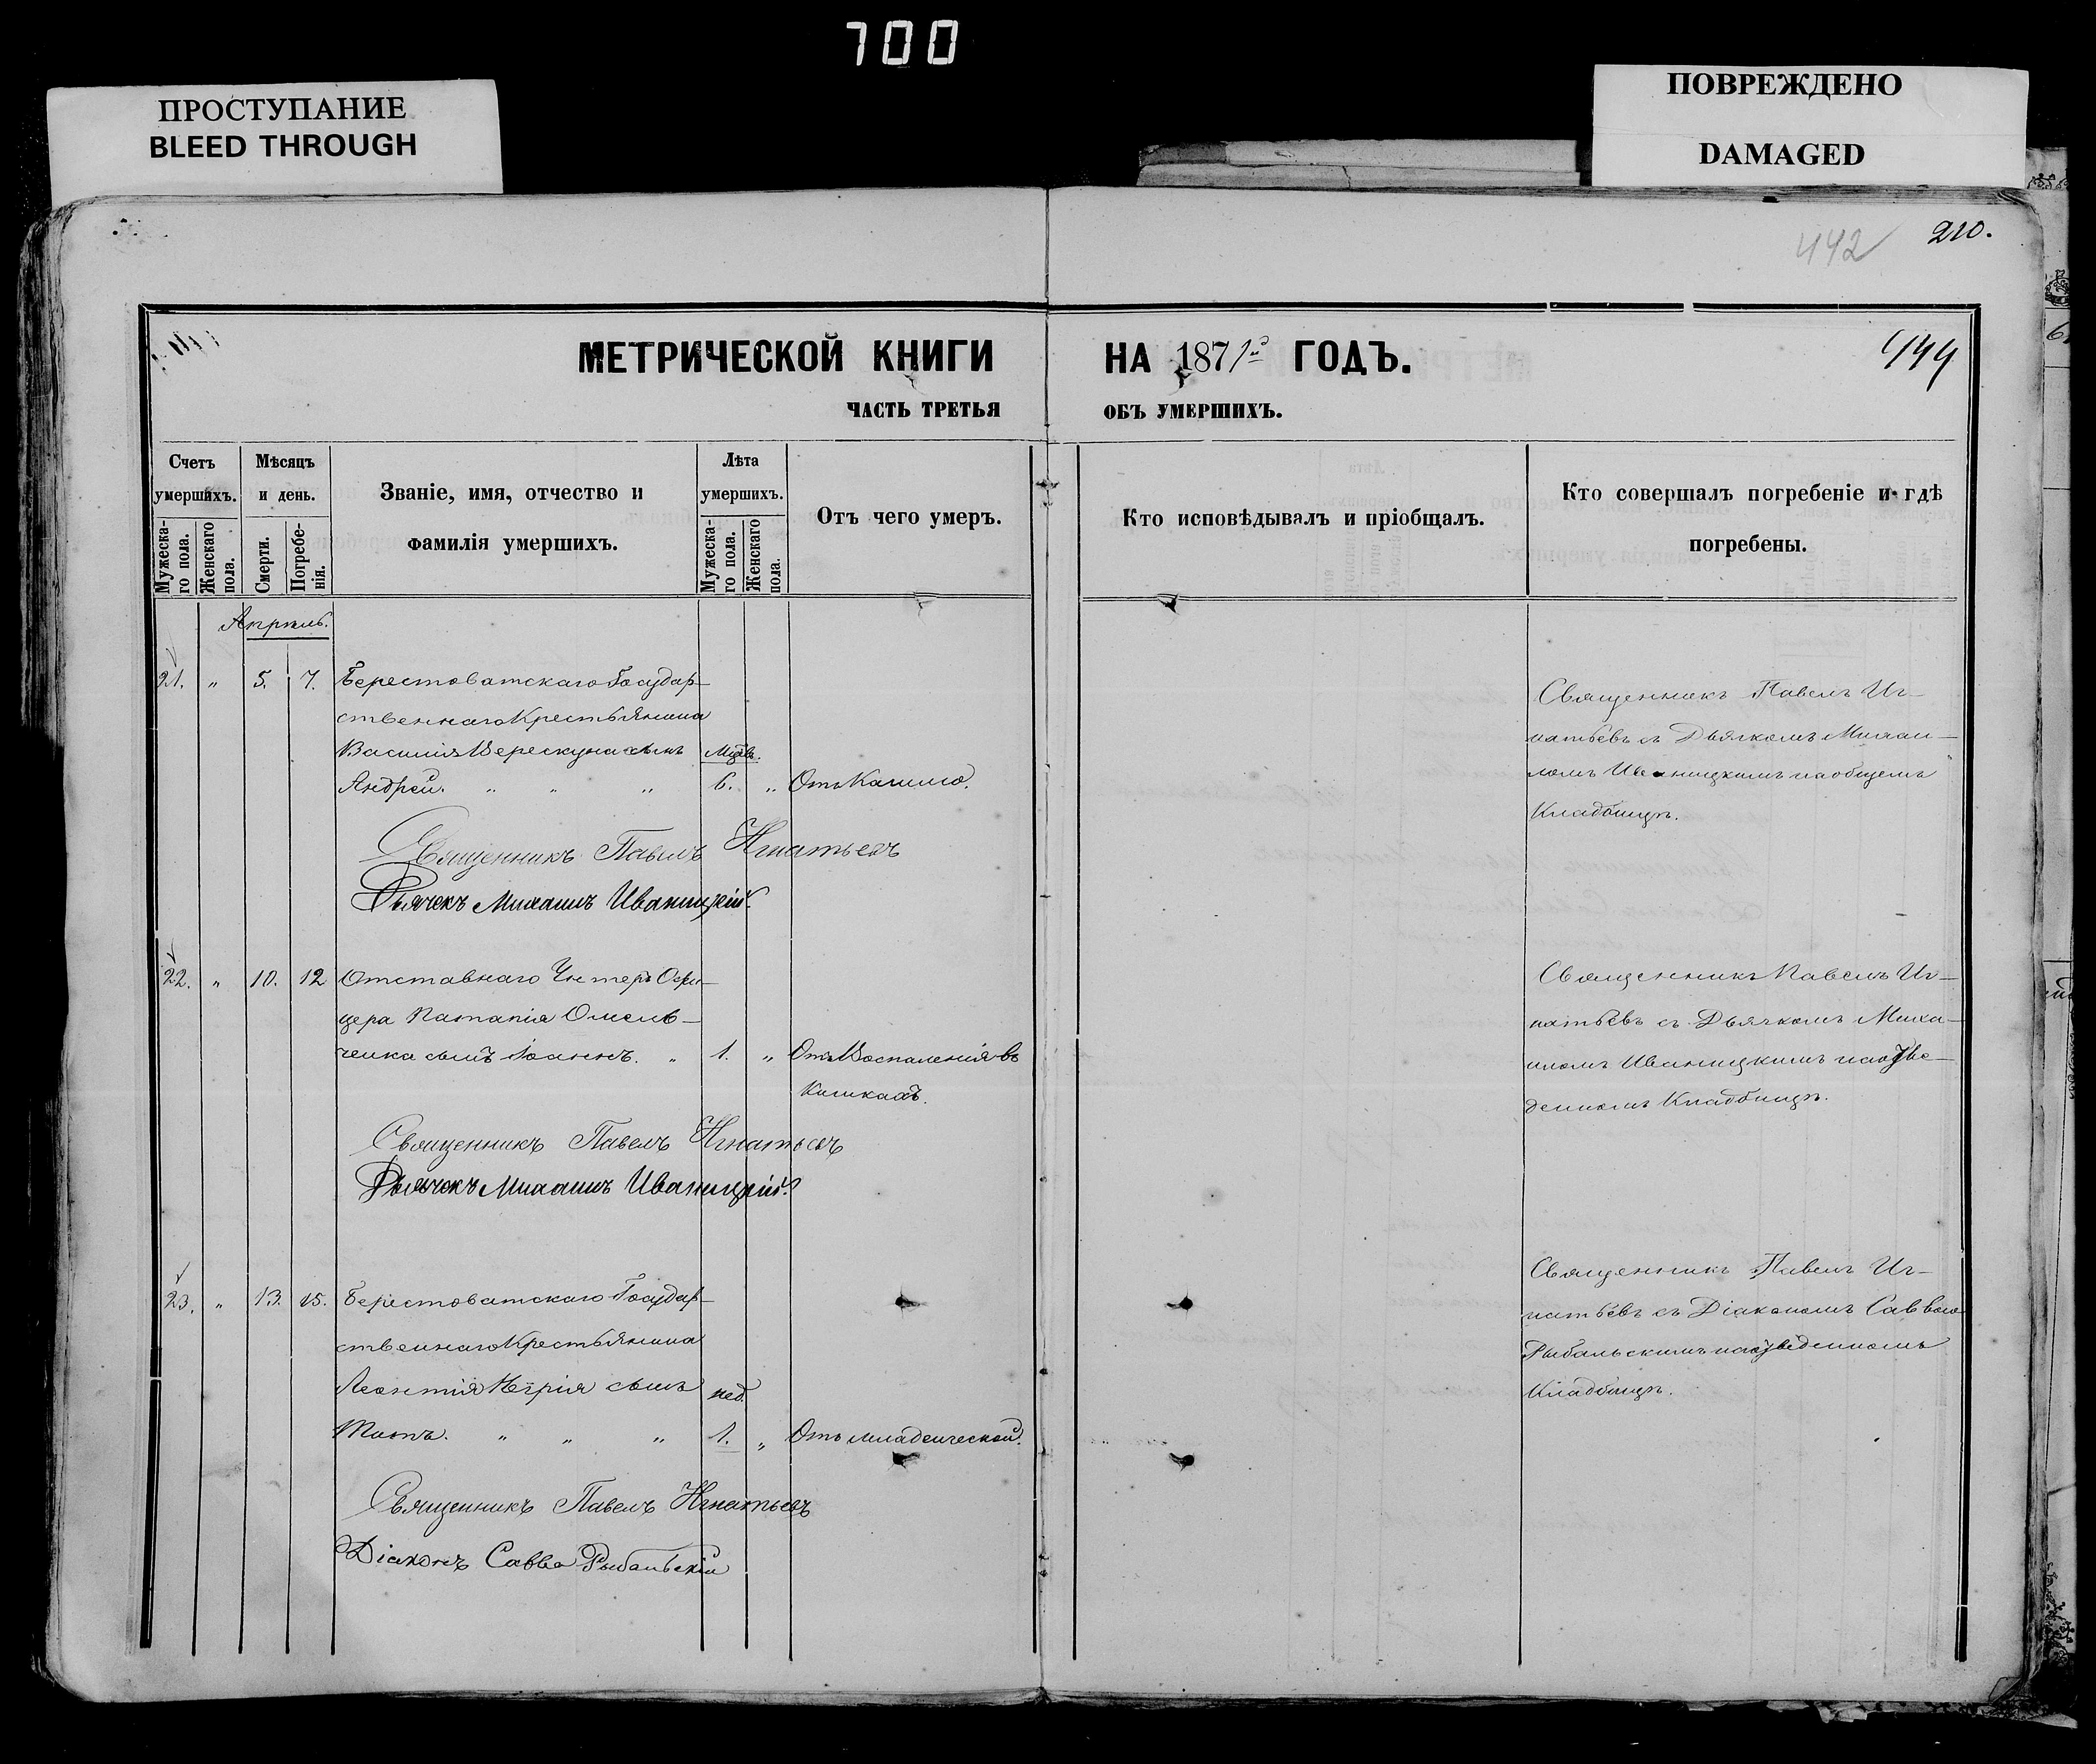 700
ПРОСТУПАНИЕ
BLEED THROUGH
ПОВРЕЖДЕНО
DAMAGED
442
210.
МЕТРИЧЕСКОЙ КНИГИ НА 1871й ГОДЪ.
444
ЧАСТЬ ТРЕТЬЯ ОБЪ УМЕРШИХЪ.
Счетъ умершихъ.
Мужеска-го пола.
Женскаго пола.
Мѣсяцъ и день.
Смерти.
Погребе-нія.
Званіе, имя, отчество и
фамилія умершихъ.
Лѣта умершихъ.
Мужеска-го пола.
Женскаго пола.
Отъ чего умеръ.
Кто исповѣдывалъ и пріобщалъ.
Кто совершалъ погребеніе и гдѣ
погребены.
Апрѣль.
21. „ 5. 7. Берестоватскаго Государ-
ственнаго Крестьянина
Василія сынъ
Андрей. „ „ „ 6. „ Отъ Кашлю.
Священникъ Павелъ Иг-
натьевъ съ Дьячкомъ Михаи-
ломъ Иваницкимъ на общемъ
Кладбищѣ.
Священникъ Павелъ Игнатьевъ
Дьячекъ Михаилъ Иваницкій.
22. „ 10. 12 Отставнаго Унтеръ Офи-
цера Патапія Омель-
ченка сынъ Іоаннъ. „ 1. „ Отъ Воспаленія въ
Кишкахъ.
Священникъ Павелъ Иг-
натьевъ съ Дьячкомъ Миха-
иломъ Иваницкимъ на отве-
денномъ Кладбищѣ.
Священникъ Павелъ Игнатьевъ
Дьячекъ Михаилъ Иваницкій.
23. „ 13. 15. Берестоватскаго Государ-
ственнаго Крестьянина
Леонтія сынъ нед.
Титъ. „ „ „ 1. „ Отъ младенческой.
Священникъ Павелъ Иг-
натьевъ съ Діакономъ Саввою
Рыбальскимъ на отведенномъ
Кладбищѣ.
Священникъ Павелъ Игнатьевъ
Діаконъ Савва Рыбальскій